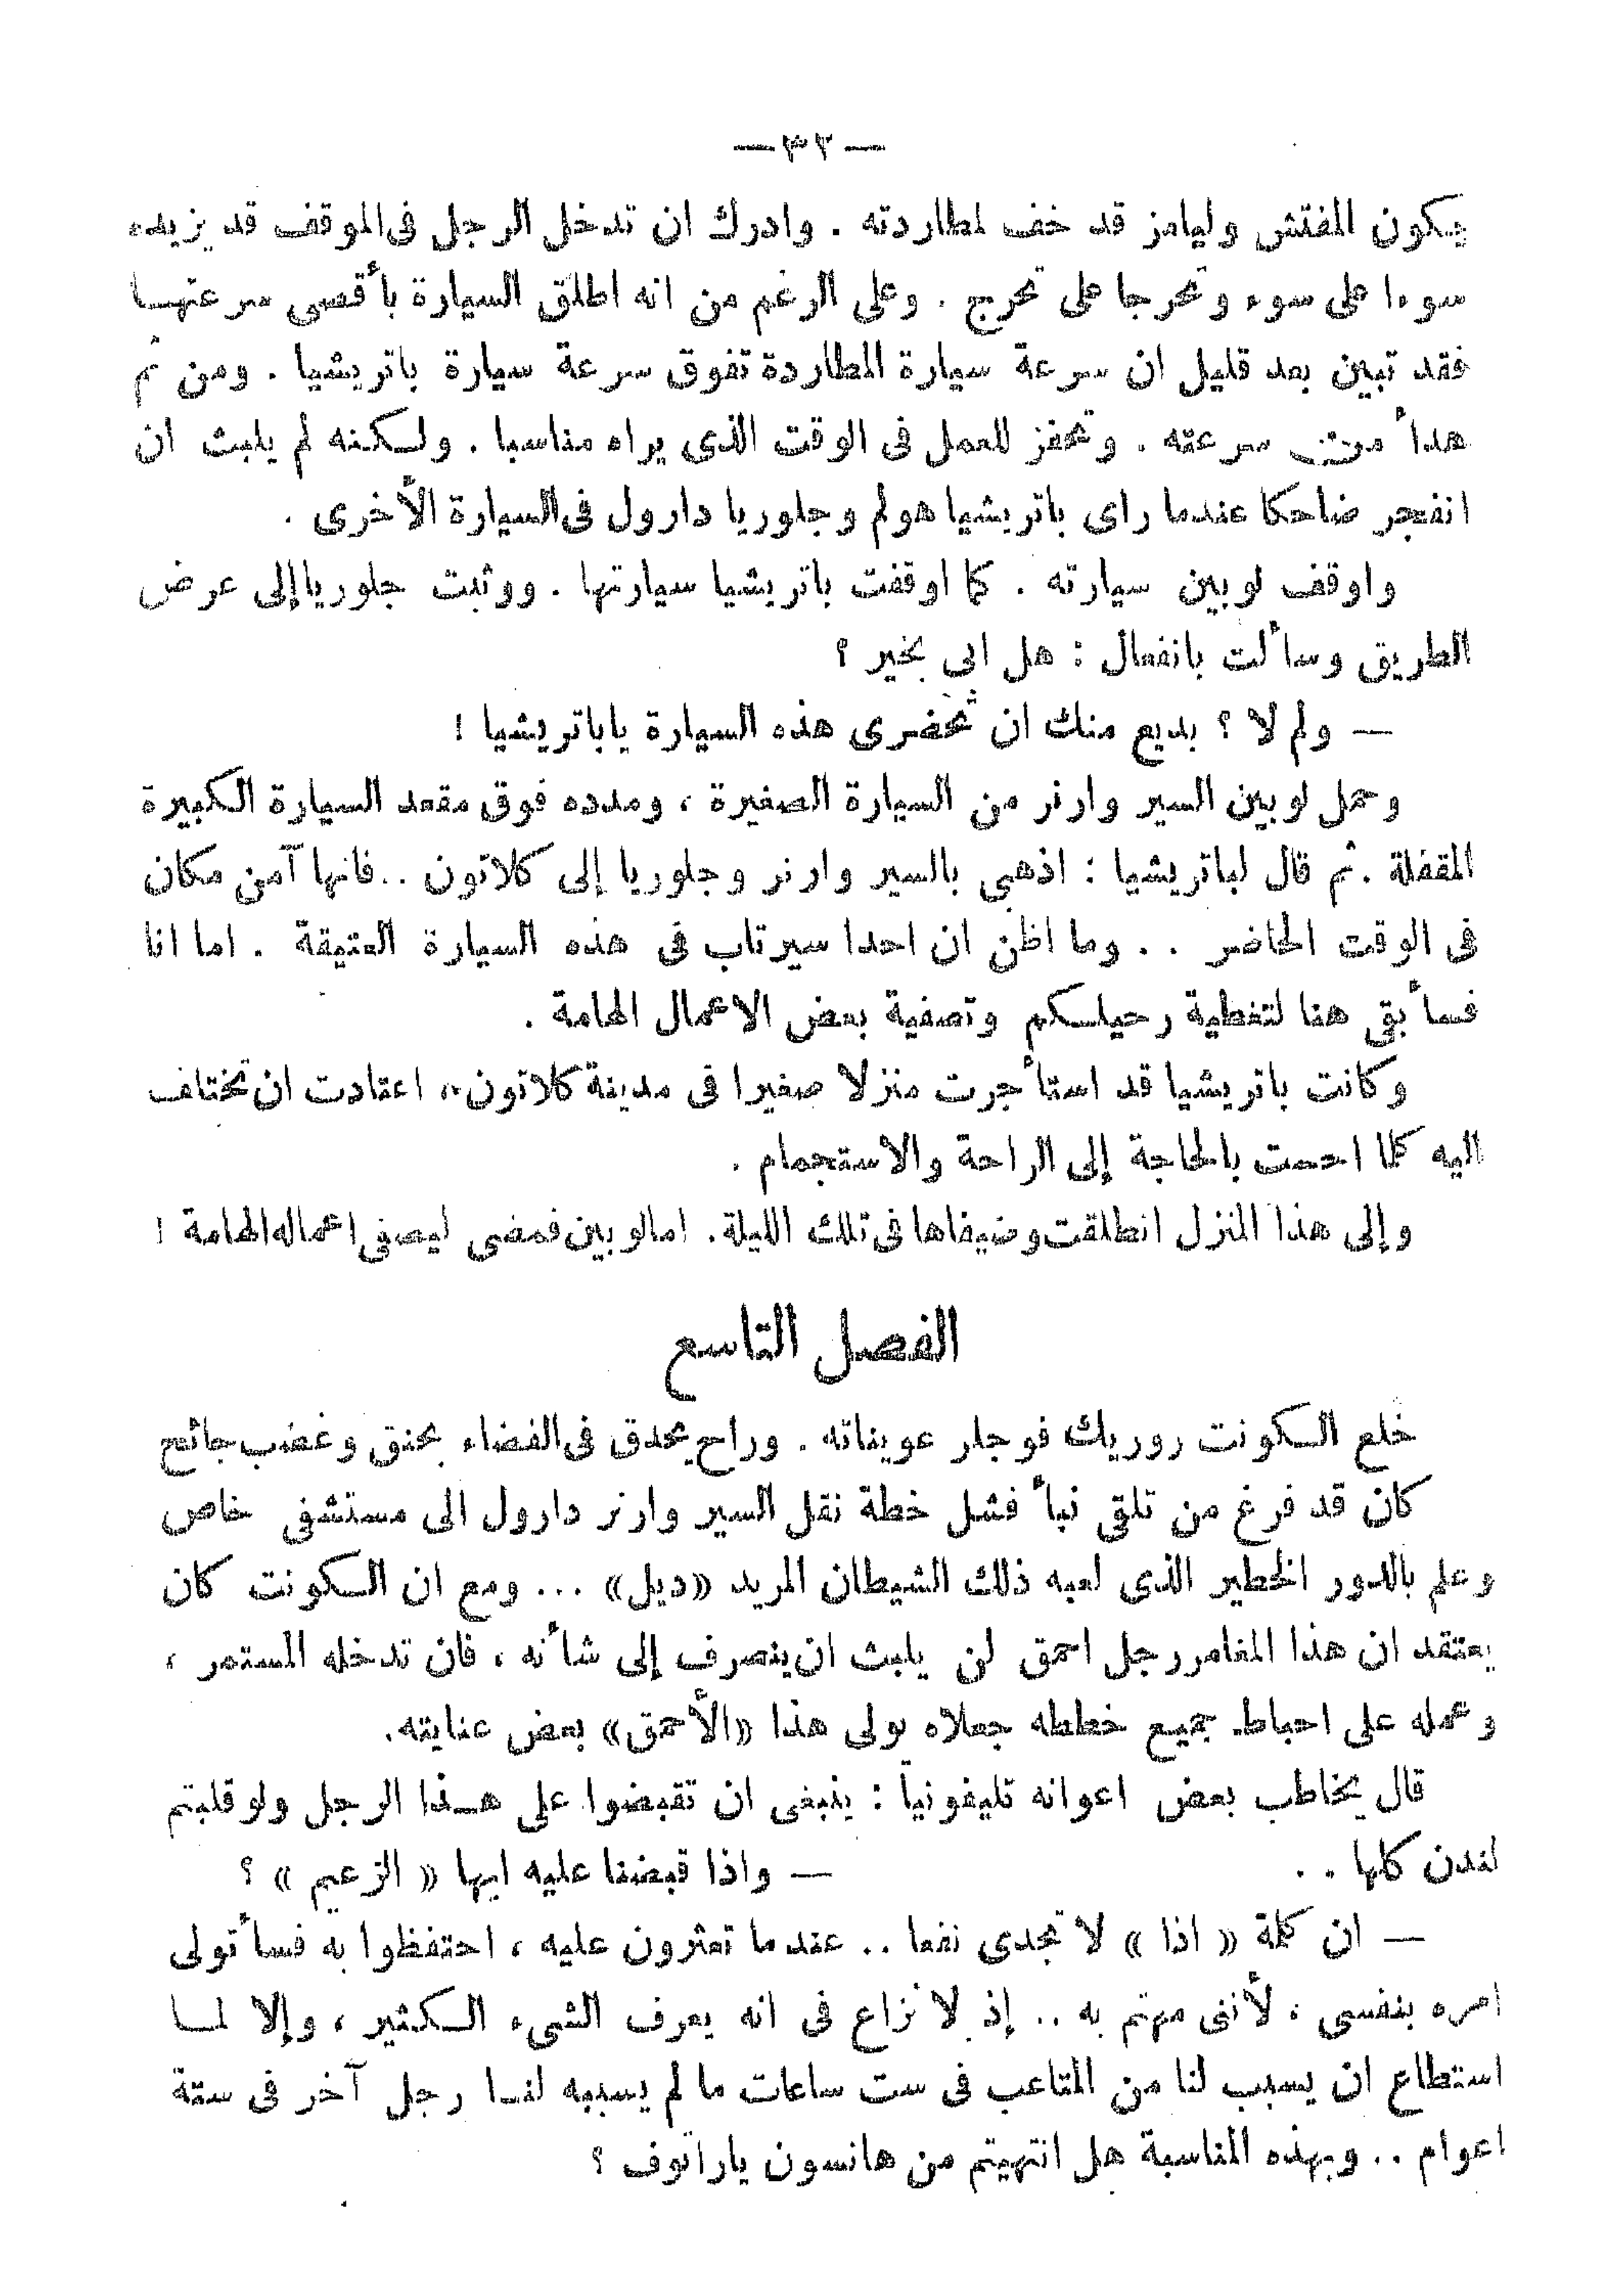 — ٣٢ —
يكون المفتش وليامز قد خف لمطاردته . وادرك ان تدخل الرجل فى الموقف قد يزيده
سوءا على سوء وتحرجا على تحرج . وعلى الرغم من انه اطلق السيارة بأقصى سرعتهــا
فقد تبين بعد قليل ان سرعة سيارة المطاردة تفوق سرعة سيارة باتريشيا . ومن ثم
هدأ من سرعته . وتحفز للعمل فى الوقت الذى يراه مناسبا . ولكنه لم يلبث ان
انفجر ضاحكا عندما راى باتريشيا هولم وجلوريا دارول فى السيارة الأخرى .
واوقف لوبين سيارته . كما اوقفت باتريشيا سيارتها . ووثبت جلوريا إلى عرض
الطريق وسألت بانفعال : هل ابى بخير ؟
— ولم لا ؟ بديع منك ان تحضرى هذه السيارة ياباتريشيا !
وحمل لوبين السير وارنر من السيارة الصغيرة ، ومدده فوق مقعد السيارة الكبيرة
المقفلة . ثم قال لباتريشيا : اذهبى بالسير وارنر وجلوريا إلى كلاتون .. فانها آمن مكان
فى الوقت الحاضر . . وما اظن ان احدا سيرتاب فى هذه السيارة العتيقة . اما انا
فسأبقى هنا لتغطية رحيلكم وتصفية بعض الاعمال الهامة .
وكانت باتريشيا قد استأجرت منزلا صغيرا فى مدينة كلاتون ، اعتادت ان تختلف
اليه كلما احست بالحاجة إلى الراحة والاستجمام .
وإلى هذا المنزل انطلقت وضيفاها فى تلك الليلة. امالوبين فمضى ليصفى اعماله الهامة !
الفصل التاسع
خلع الكونت روريك فوجلر عويناته . وراح يحدق فى الفضاء بحنق وغضب جائح
كان قد فرغ من تلقى نبأ فشل خطة نقل السير وارنر دارول الى مستشفى خاص
وعلم بالدور الخطير الذى لعبه ذلك الشيطان المريد «ديل» ... ومع ان الكونت كان
يعتقد ان هذا المغامر رجل احمق لن يلبث ان ينصرف إلى شأنه ، فان تدخله المستمر ،
وعمله على احباط جميع خططه جعلاه يولى هذا «الأحمق» بعض عنايته.
قال يخاطب بعض اعوانه تليفونياً : ينبغى ان تقبضوا على هــذا الرجل ولو قلبتم
لندن كلها . .
— واذا قبضنا عليه ايها « الزعيم » ؟
— ان كلمة « اذا » لا تجدى نفعا .. عند ما تعثرون عليه ، احتفظوا به فسأتولى
امره بنفسى ، لأننى مهتم به .. إذ لا نزاع فى انه يعرف الشىء الكثير ، وإلا لمــا
استطاع ان يسبب لنا من المتاعب فى ست ساعات ما لم يسببه لنــا رجل آخر فى ستة
اعوام .. وبهذه المناسبة هل انتهيتم من هانسون ياراتوف ؟